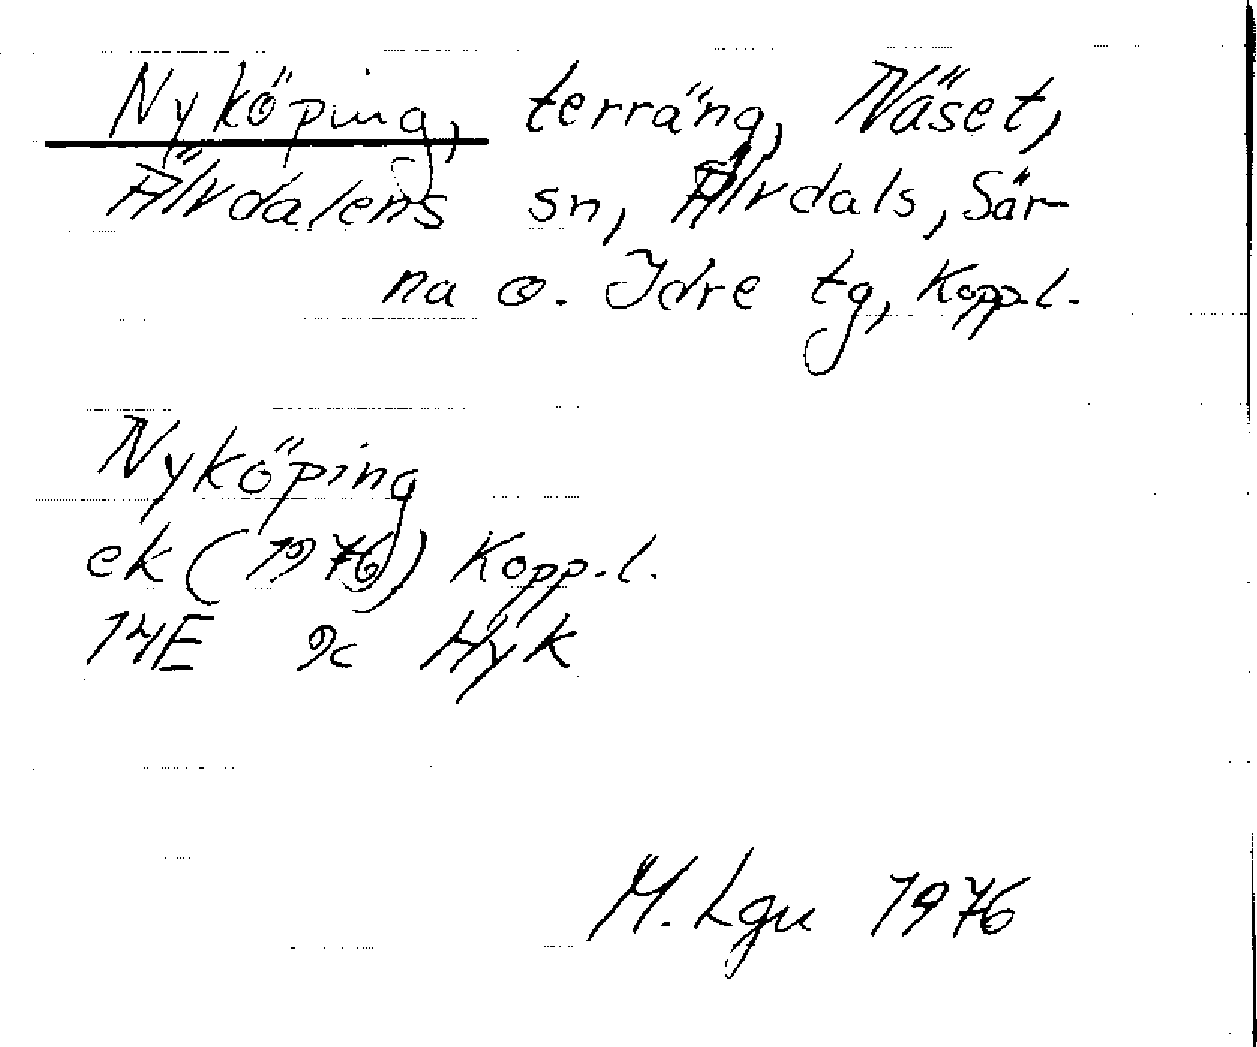 Nyköping, terräng, Näset,
Älvdalens sn, Älvdals, Sär-
na o. Idre tg, Kopp.l.
Nyköping
ek (1976) Kopp.l.
14E 9c Hyk
M. Lgu 1976